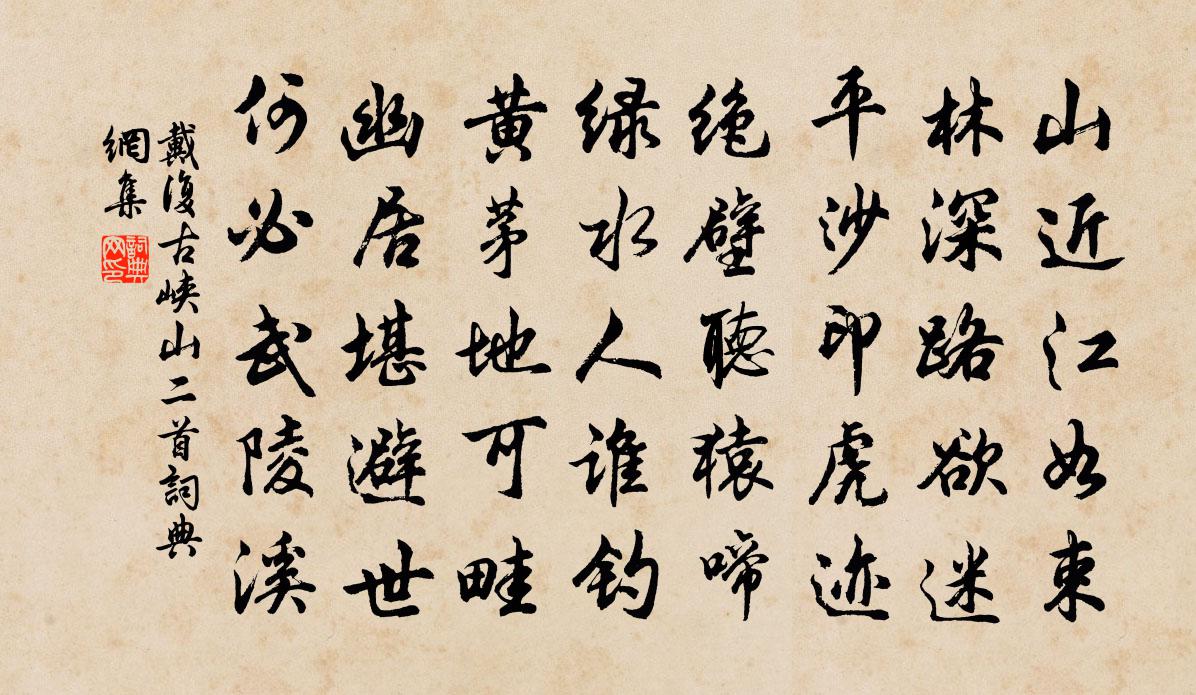 山近江如束
林深路欲迷
平沙印虎迹
绝壁聽猿啼
绿水人谁钓
黄茅地可畦
幽居堪避世
何必武陵溪
戴復古峡山二首詞典
網集
詞典
网印